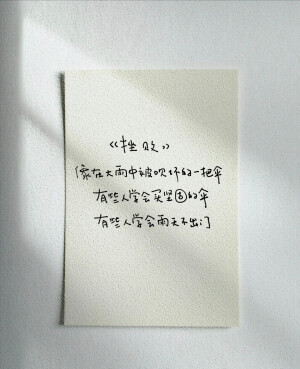 《挫败》
像在大雨中被吹坏的一把伞
有些人学会买坚固的伞
有些人学会雨天不出门